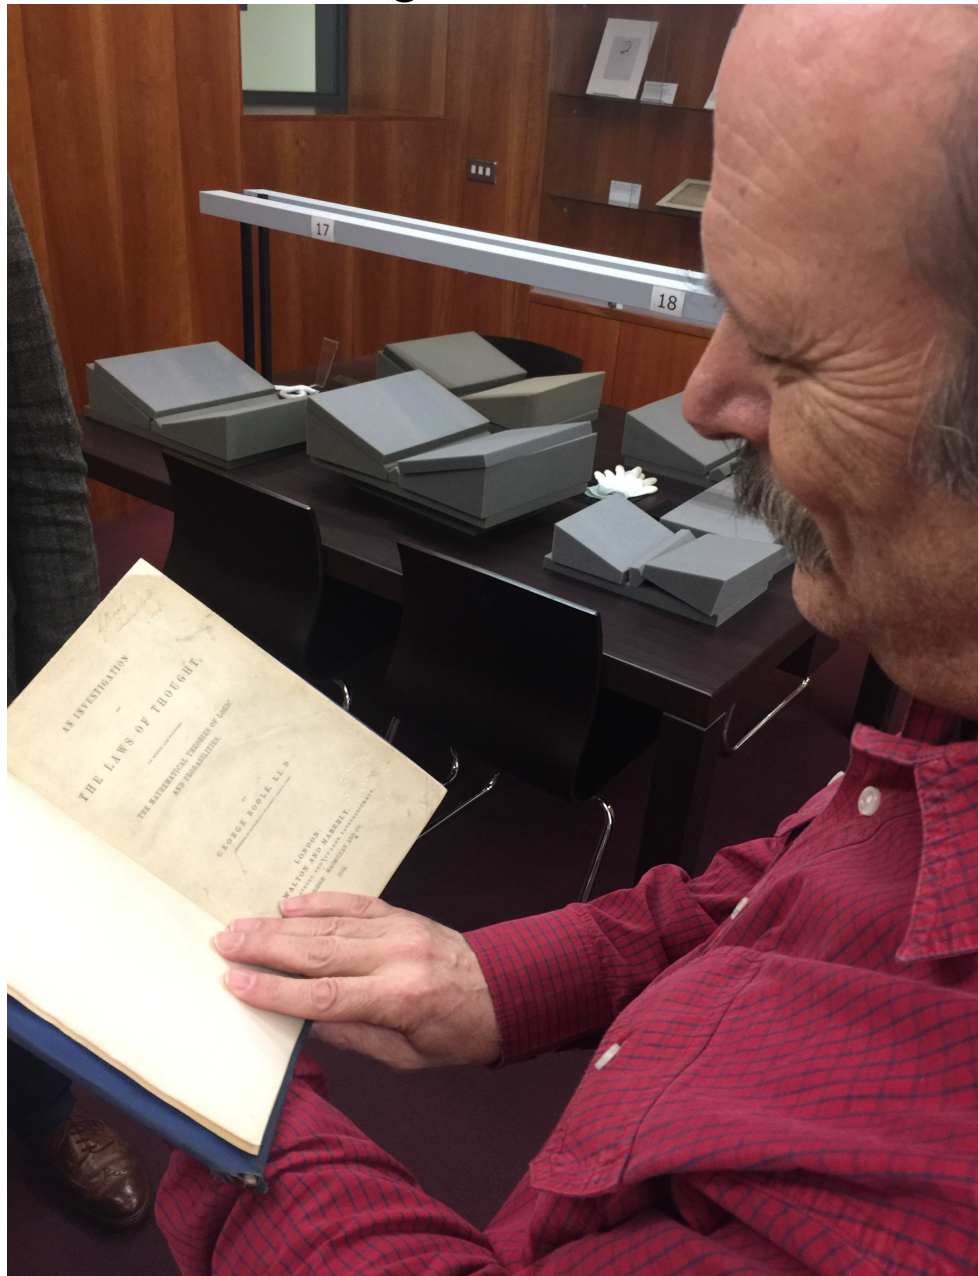 17
18
AN INVESTIGATION
OF
THE LAWS OF THOUGHT,
ON WHICH ARE FOUNDED
THE MATHEMATICAL THEORIES OF LOGIC
AND PROBABILITIES.
BY
GEORGE BOOLE, LL.D
LONDON:
WALTON AND MABERLY,
MACMILLAN AND CO.
1854.